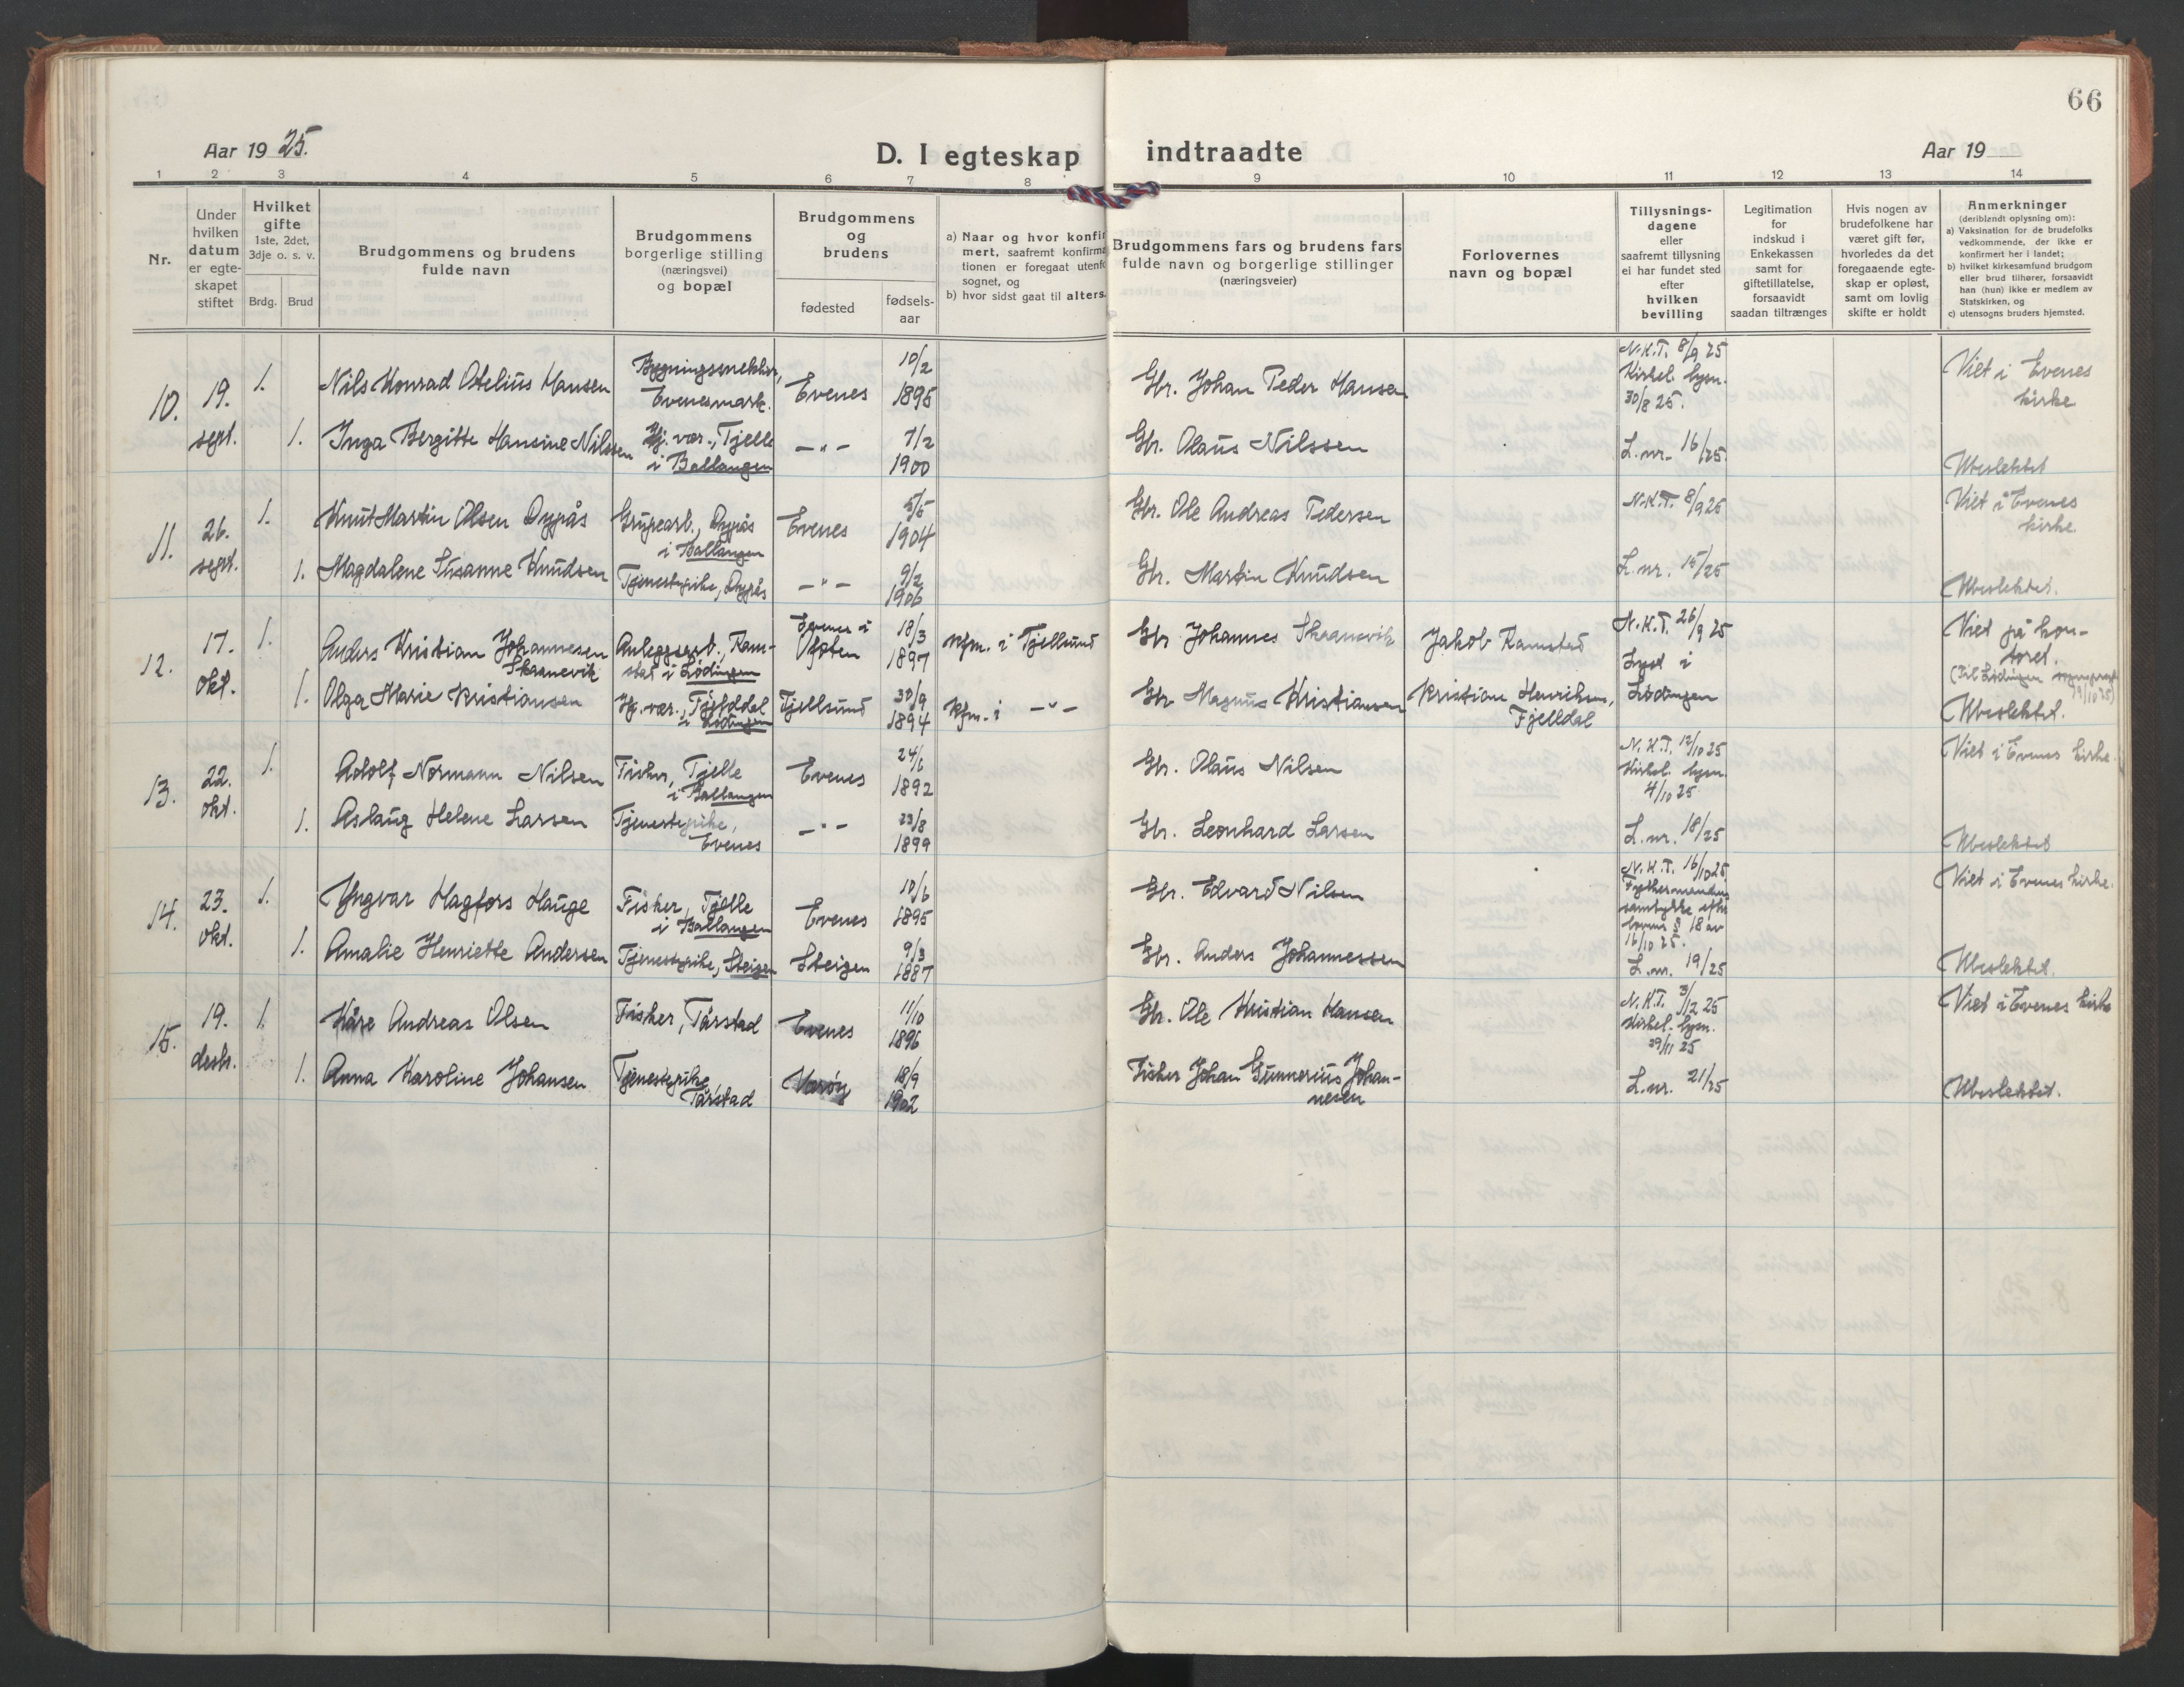 66
Aar 19 25.
D. I egteskap indtraadte
Aar 19
1 2 3 4 5 6 7 8 9 10 11 12 13 14
Nr.
Under
hvilken
datum
er egte-
skapet
stiftet
Hvilket
gifte
1ste, 2det,
3dje o. s. v.
Brdg. Brud
Brudgommens og brudens
fulde navn
Brudgommens
borgerlige stilling
(næringsvei)
og bopæl
Brudgommens
og
brudens
fødested
fødsels-
aar
a) Naar og hvor konfir
mert, saafremt konfirma
tionen er foregaat utenfo
sognet, og
b) hvor sidst gaat til alters.
Brudgommens fars og brudens fars
fulde navn og borgerlige stillinger
(næringsveier)
Forlovernes
navn og bopæl
Tillysnings-
dagene
eller
saafremt tillysning
ei har fundet sted
efter
hvilken
bevilling
Legitimation
for
indskud i
Enkekassen
samt for
giftetillatelse,
forsaavidt
saadan tiltrænges
Hvis nogen av
brudefolkene har
været gift før,
hvorledes da det
foregaaende egte-
skap er opløst,
samt om lovlig
skifte er holdt
Anmerkninger
(deriblendt oplysning om):
a) Vaksination for de brudefolks
vedkommende, der ikke er
konfirmert her i landet;
b) hvilket kirkesamfund brudgom
eller brud tilhører, forsaavidt
han (hun) ikke er medlem av
Statskirken, og
c) utensogns bruders hjemsted.
10.
19.
sept.
1.
Nils Konrad Otelius Hansen
Bygningssnekker,
Evenesmark.
Evenes
10/2
1895
Gbr. Johan Peder Hansen
N.K.T. 8/9 25
Kirkel. lysn.
30/8 25.
Viet i Evenes
kirke
1.
Inga Bergitte Hansine Nilssen
Hj. vær., Tjelle
i Ballangen
— " —
7/2
1900
Gbr. Olaus Nilssen
L. nr. 16/25.
Ubeslektet
11.
26.
sept.
1.
Knut Martin Olsen Dypås
Grubearb., Dypås
i Ballangen
Evenes
5/5
1904
Gbr. Ole Andreas Pedersen
N.K.T. 8/9 25
Viet i Evenes
kirke.
1.
Magdalene Susanne Knudsen
Tjenestepike, Dypås
— " —
9/2
1906
Gbr. Martin Knudsen
L. nr. 15/25
Ubeslektet.
12.
17.
okt.
1.
Anders Kristian Johannesen
Skaanevik
Anleggsarb., Ram-
stad i Lødingen
Evenes i
Ofoten
18/3
1897
Kfm. i Tjellsund
Gbr Johannes Skaanevik
Jakob Ramstad
N.K.T. 26/9 25
Lyst i
Viet på kon-
toret.
(Til Lødingen
1.
Olga Marie Kristiansen
Hj. vær., Fjelddal
i Lødingen
Tjellsund
30/9
1894
Kfm. i — " —
Gbr Magnus Kristiansen
Kristian Henriksen,
Fjelldal
Lødingen
Ubeslektet.
13.
22.
okt.
1.
Adolf Normann Nilsen
Fisker, Tjelle
i Ballangen
Evenes
24/6
1892
Gbr. Olaus Nilsen
N.K.T. 12/10 25
Kirkel. lysn.
4/10 25
Viet i Evenes kirke.
1.
Aslaug Helene Larsen
Tjenestepike,
Evenes
— " —
23/8
1899
Gbr. Leonhard Larsen
L. nr. 18/25
Ubeslektet
14.
23.
okt.
1.
Yngvar Hagfors Hauge
Fisker, Tjelle
i Ballangen
Evenes
10/6
1895
Gbr. Edvard Nilsen
N.K.T. 16/10 25,
samtykke efter
lovens § 18 av
16/10 25.
Viet i Evenes kirke.
1.
Amalie Henriette Andersen
Tjenestepike, Steigen
Steigen
9/3
1887
Gbr. Anders Johannessen
L. nr. 19/25
Ubeslektet.
15.
19.
desbr.
1.
Kåre Andreas Olsen
Fisker, Tårstad
Evenes
11/10
1896
Gbr. Ole Kristian Hansen
N.K.T. 3/12 25
Kirkel. lysn.
29/11 25
Viet i Evenes kirke
1.
Anna Karoline Johansen
Tjenestepike
Tårstad
Værøy
18/9
1902
Fisker Johan Gunnerius Johan-
nesen
L. nr. 21/25
Ubeslektet.